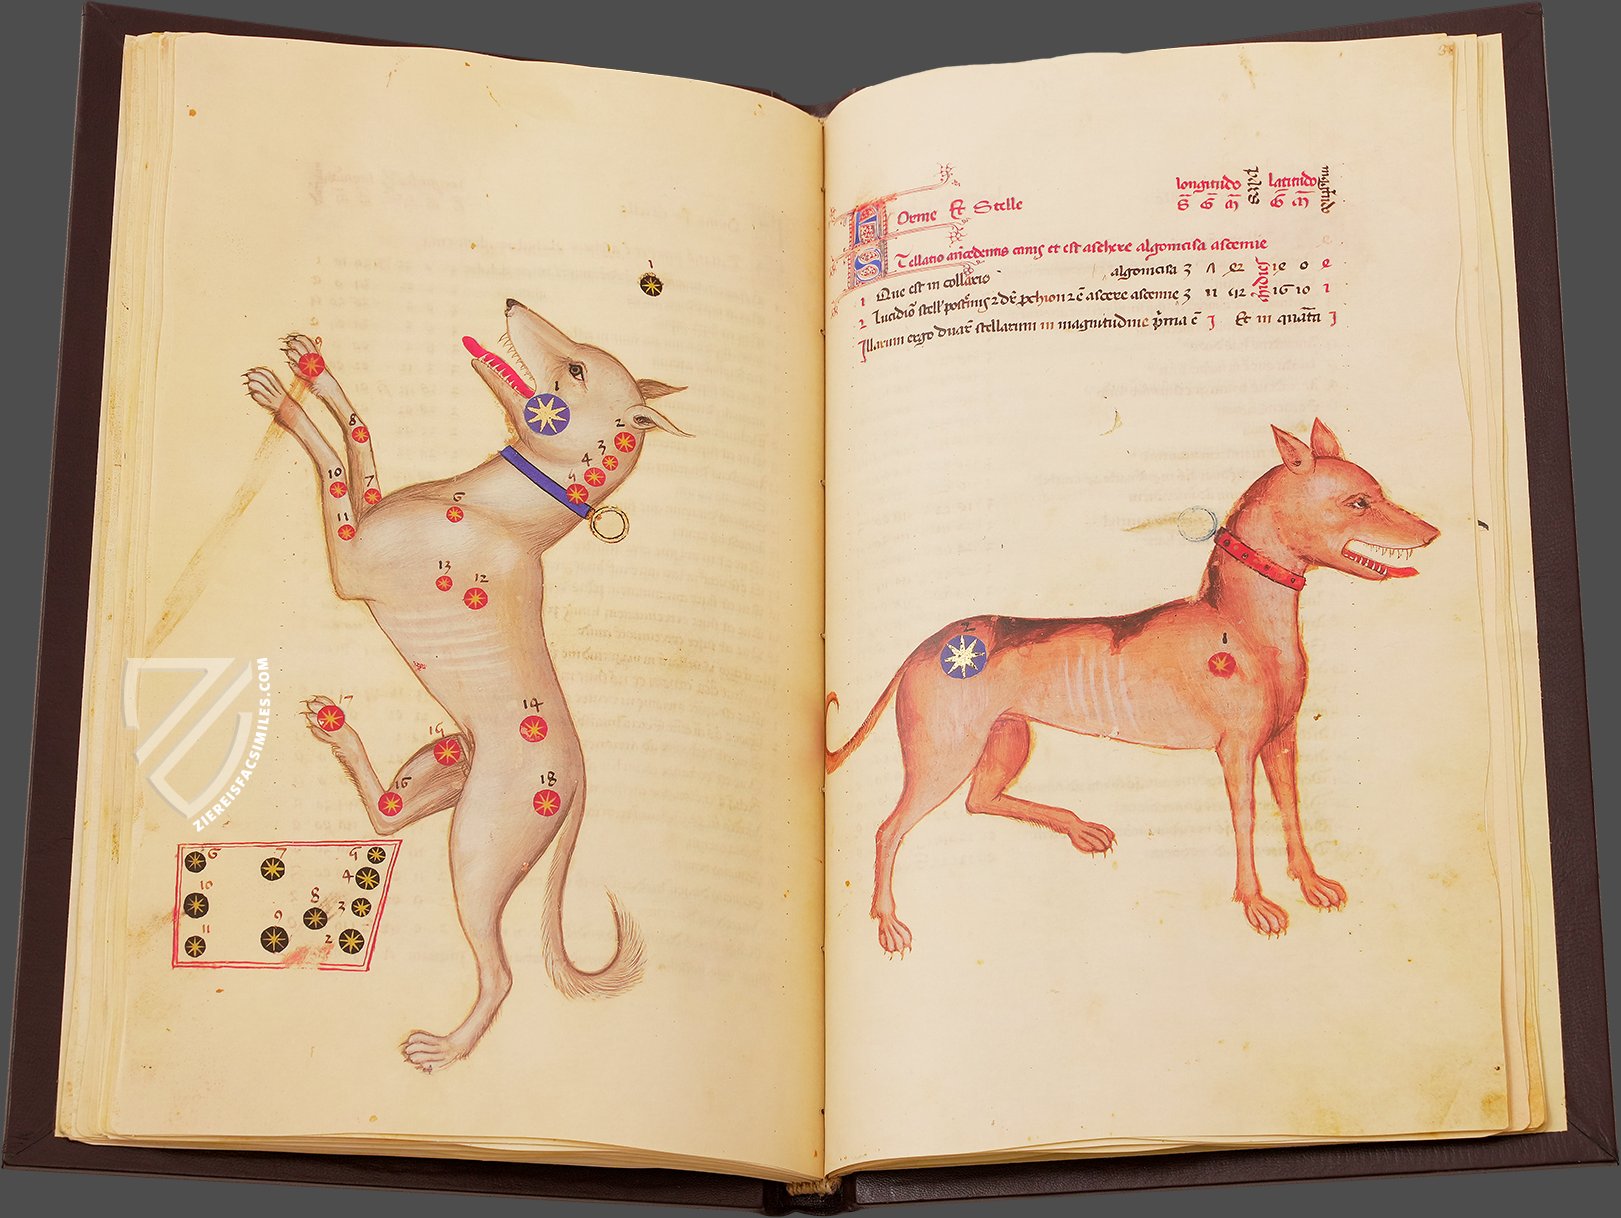 1
9
8
10
7
11
6
1
2
3
4
5
13
12
14
17
15
16
18
6
7
5
10
4
8
3
11
9
2
ZIEREISFACSIMILES.COM
longitudo latitudo
S G M G M
Forme Et Stelle
Stellatio antecedentis canis et est aschere algomeisa ascemie
1 Que est in collario algomeisa 3
2 ascere ascemie 3 11 16 10 1
Illarum ergo duarum stellarum in magnitudine prima est 1 Et in quarta 1
2
1